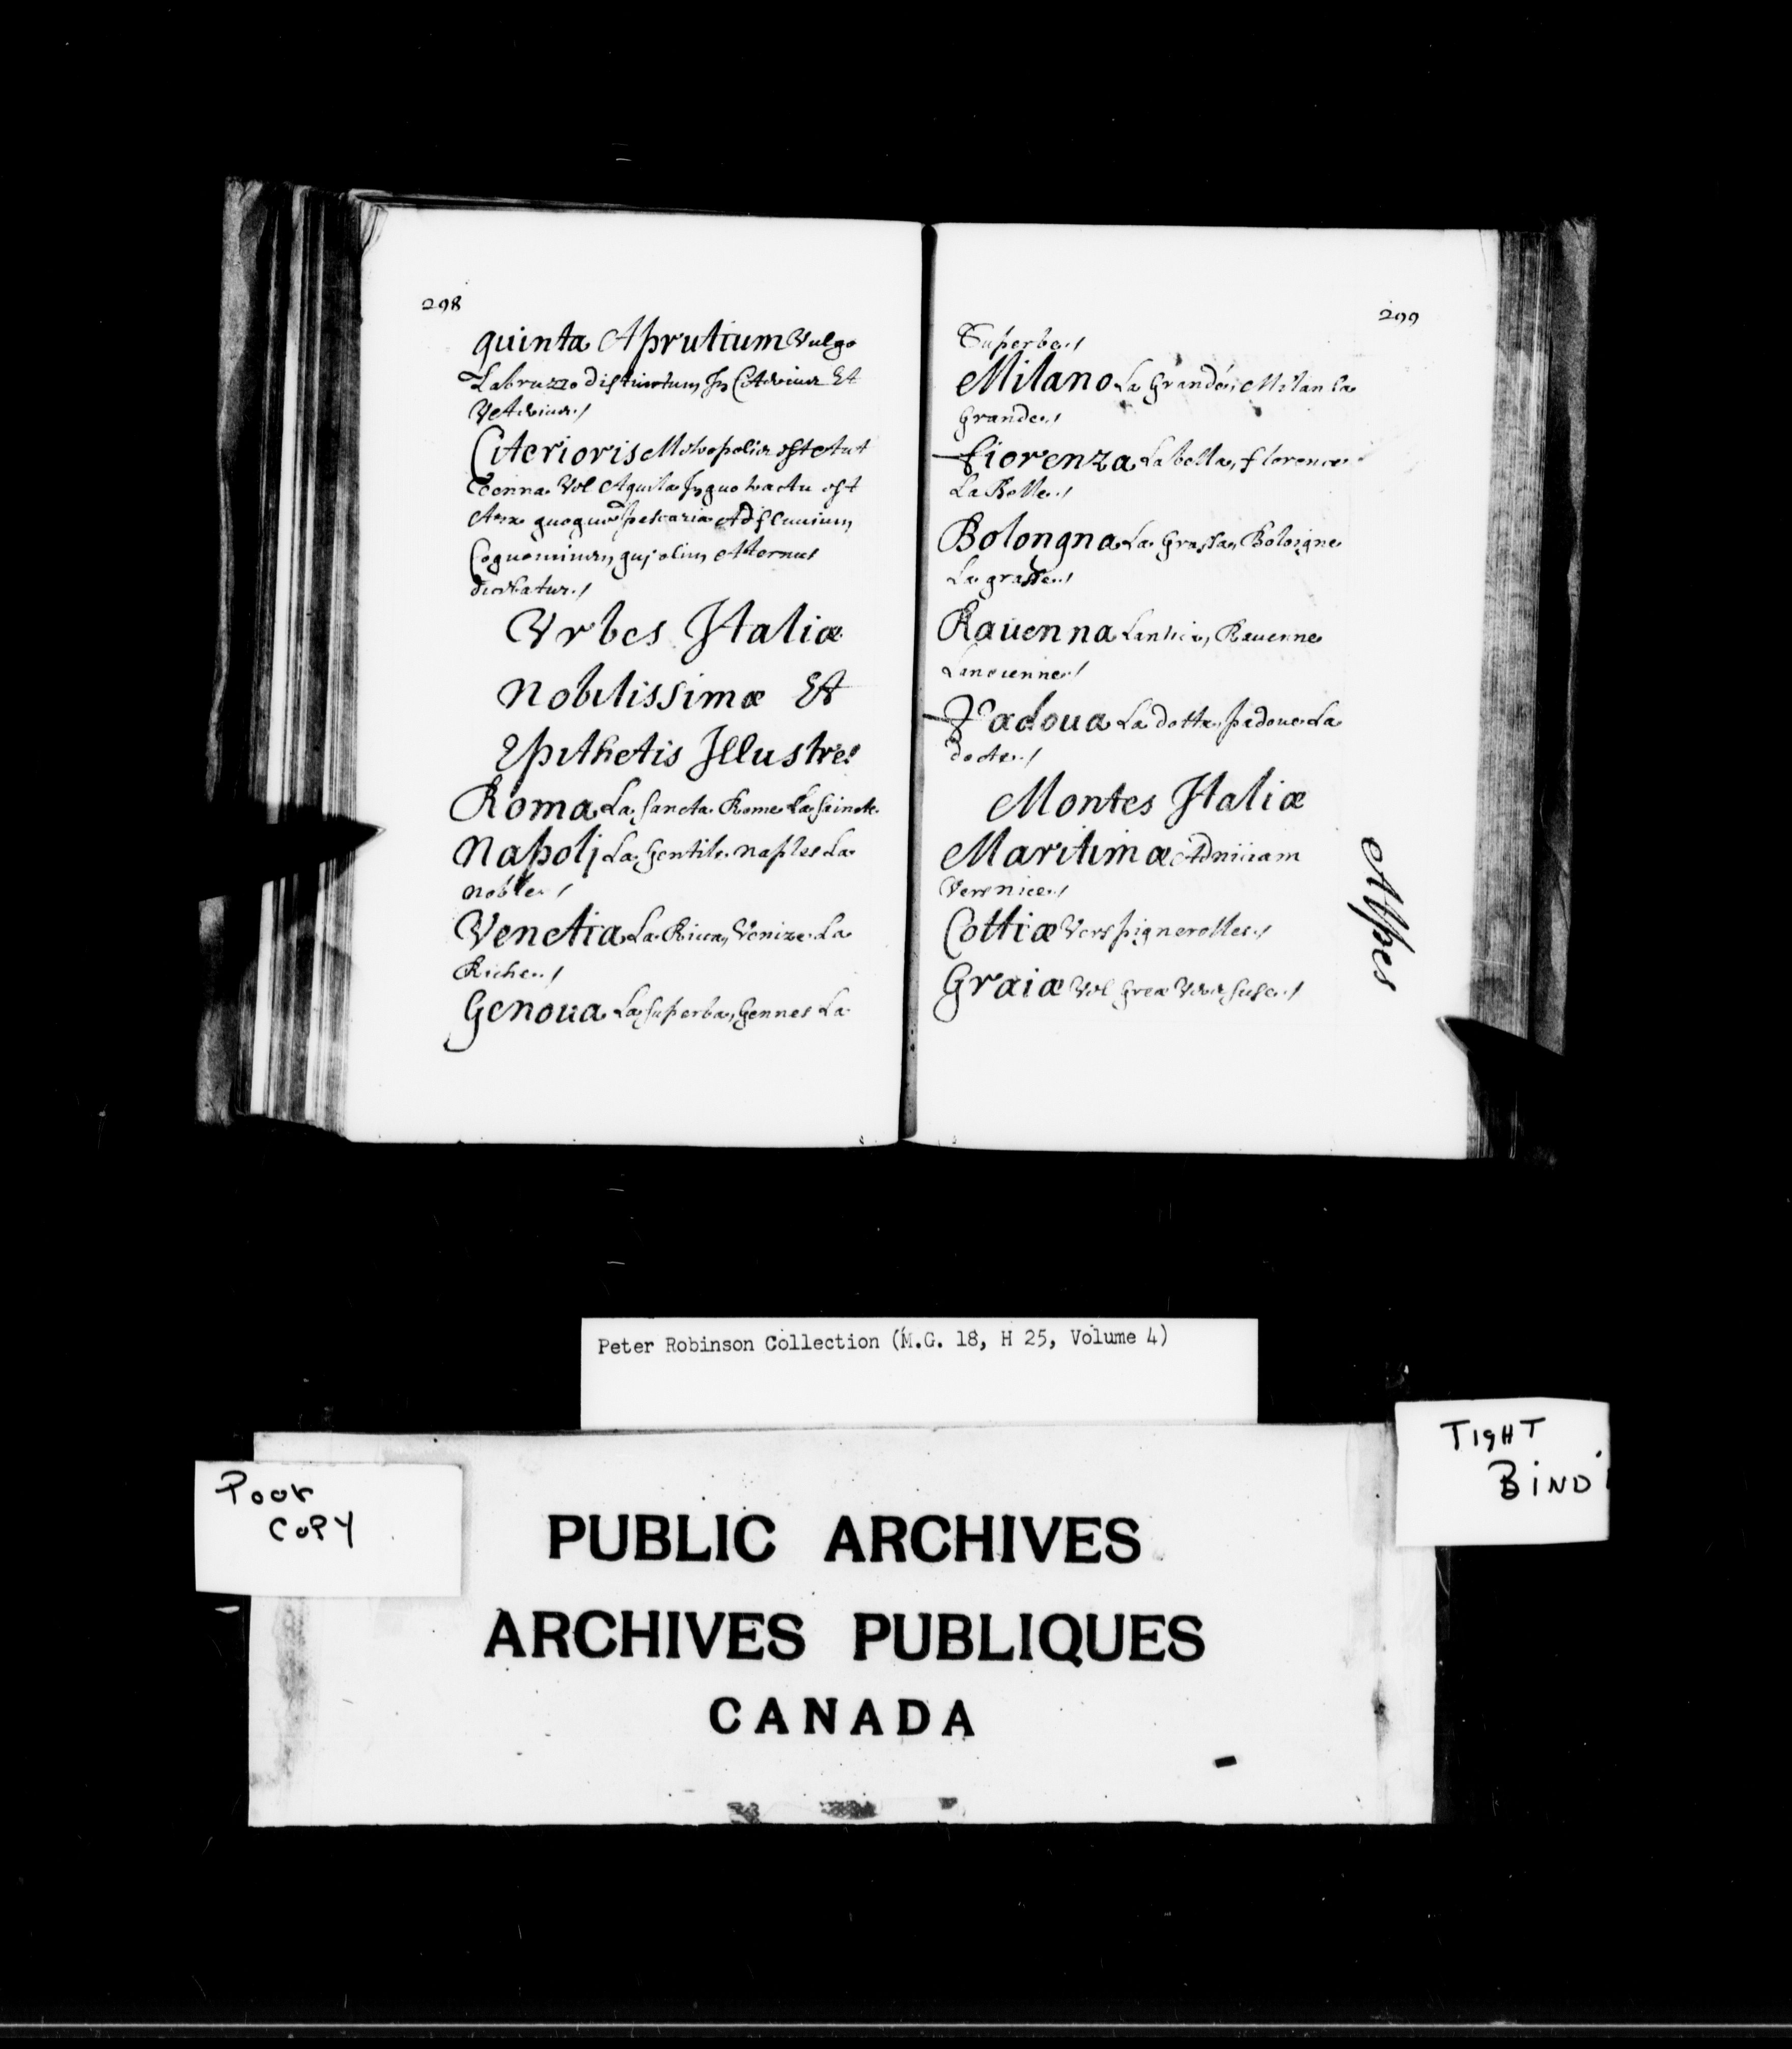 298
quinta Aprutium Vulgo
Labruzzo distinctum In Citerius Et
Vlterius /
Citerioris Metropolis est
Vel Aquila In quo tractu est
Arx quoque pescaria Ad fluuium
Cognominem, quj olim Aternus
dicebatur /
Vrbes Italiæ
Nobilissimæ Et
Epithetis Illustres
Roma La Sancta Rome La Saincte
Napolj La Gentile naples La
noble /
Venetia La Ricca, Venize La
Riche /
Genoua La Superba, Gennes La
299
Superbe /
Milano La Grande, Milan La
Grande /
fiorenza La bella, florence
La Belle /
Bolongna La Grassa, Boloigne
La grasse /
Rauenna Lantica, Rauenne
Lancienne /
Padoua La dotta, padoue La
docte /
Montes Italiæ
Maritimæ Ad niciam
Vers nice /
Cottiæ Vers pignerolles /
Graiæ Vel Greæ Vers suse /
Alpes
Peter Robinson Collection (M.G. 18, H 25, Volume 4)
Poor
Copy
Tight
Bind
PUBLIC ARCHIVES
ARCHIVES PUBLIQUES
CANADA